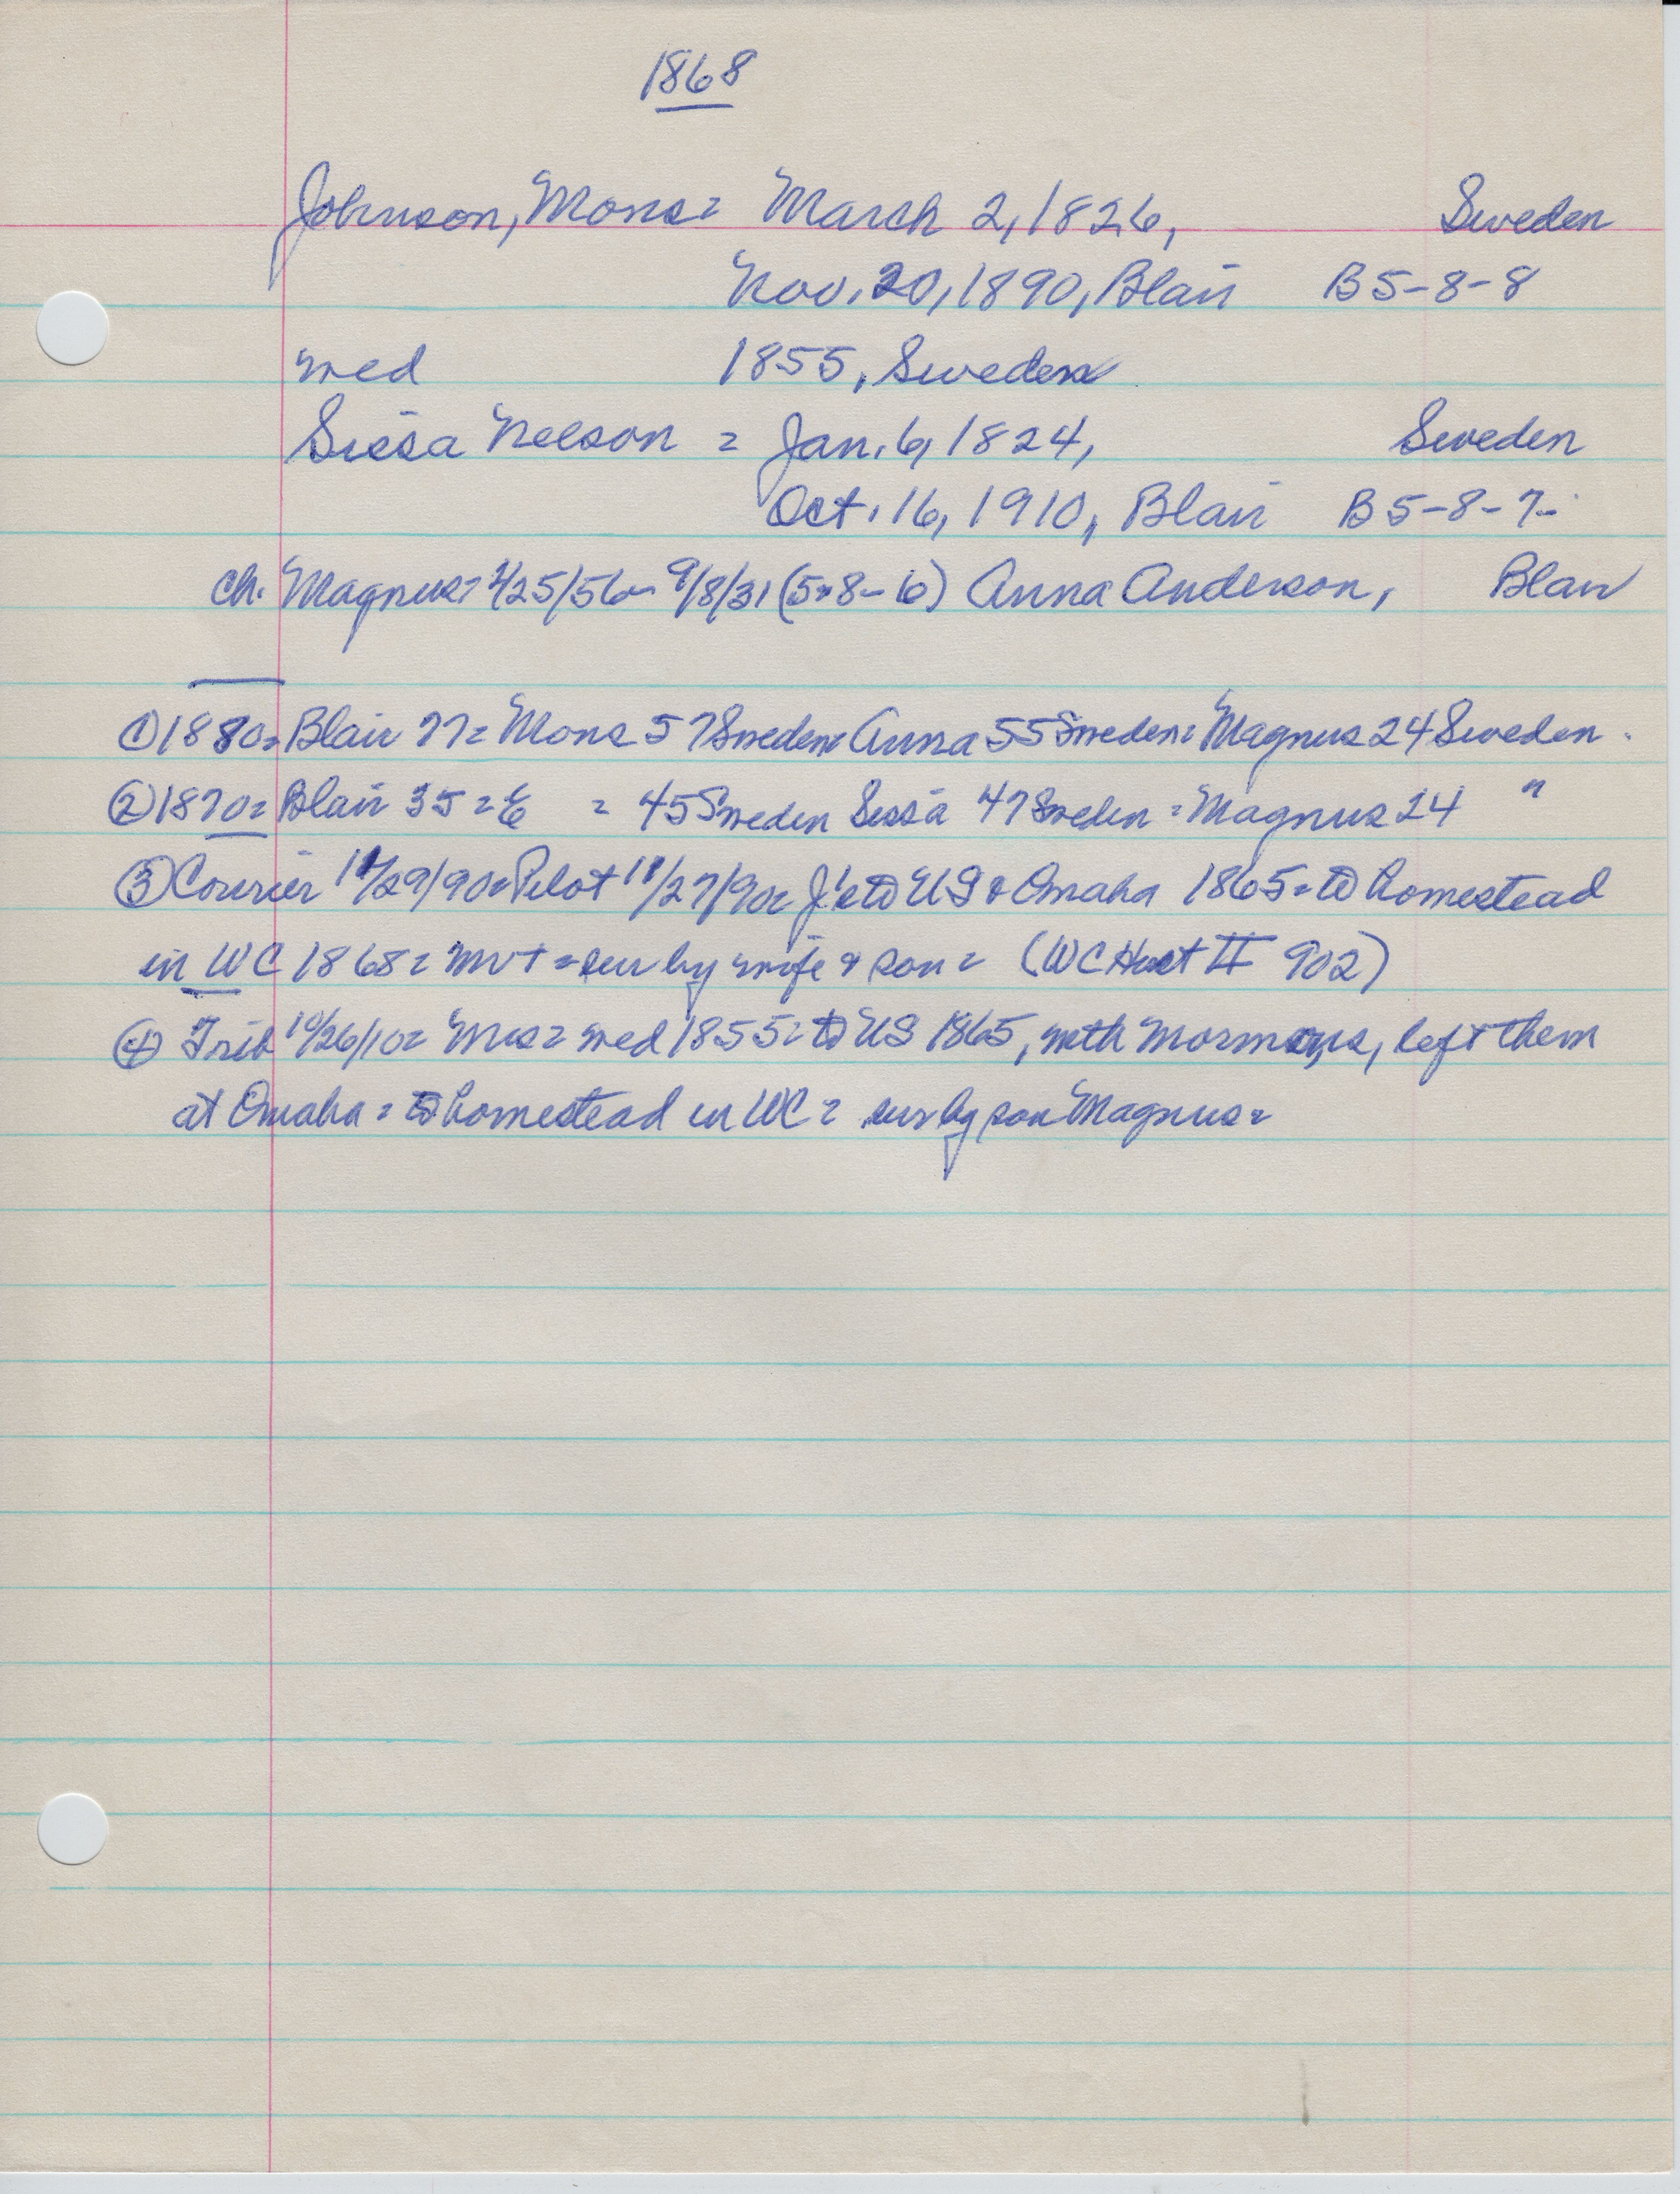 1868
Johnson, Mons = March 2, 1826, Sweden
Nov. 20, 1890, Blair B5-8-8
med 1855, Sweden
Sissa Nelson = Jan. 6, 1824, Sweden
Oct. 16, 1910, Blair B5-8-7-
ch. Magnus = /25/56 - 9/8/31 (5-8-6) Anna Anderson, Blair
① 1880 = Blair 77 = Mons 57 Sweden = Anna 55 Sweden = Magnus 24 Sweden.
② 1870 = Blair 35 = = 45 Sweden Sissa 47 Sweden = Magnus 14 "
③ Courier 11/29/90 = Pilot 11/27/90 = J's to US & Omaha 1865 = to homestead
in WC 1868 = mvt = sur by wife & son = (WC Hist II 902)
④ Trib 10/26/10 = Mrs = med 1855 = to US 1865, with Mormons, left them
at Omaha = to homestead in WC = sur by son Magnus =